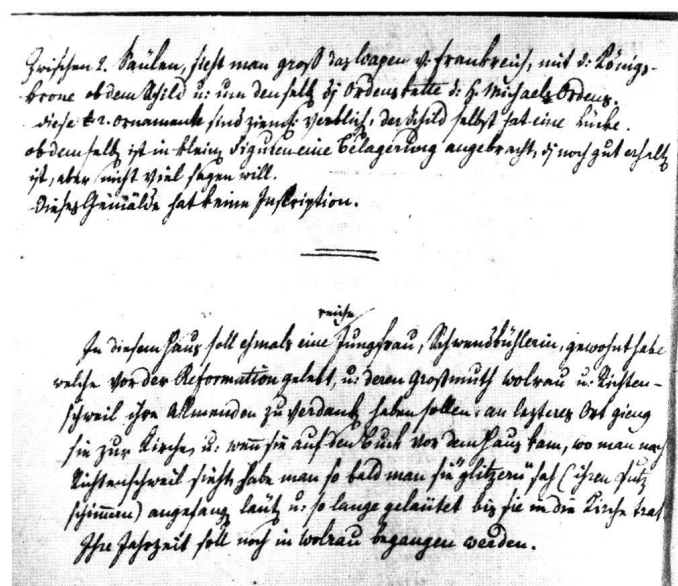 Zwischen 2. Säulen, sieht man groß das Wapen v. Frankreich, mit d. Königs-
krone ob dem Schild u: um denselb. dz Ordenskette d: H. Michaels Ordens.
diese 2. Ornamente sind ziemlich verblich, der Schild selbst hat eine Lücke.
ob demselb. ist in klein Figuren eine Belagerung angebracht, dz noch gut erhalt
ist, aber nicht viel sagen will.
Dieses Gemälde hat keine Inskription.
reiche
In diesem Haus soll ehmals eine Jungfrau, Schwendbühlerin, gewohnt habe
welche vor der Reformation gelebt, u: deren Großmuth Wolrau u: Richten-
schweil ihre Allmenden zu verdank haben sollen. an lezteres Ort gieng
sie zur Kirche, u: wenn sie auf den Buck vor dem Haus kam, wo man nach
Richtenschweil sieht, habe man so bald man sie "glitzern" sah (ihren Putz
schimmern) angefang läut, u: so lange geläutet bis sie in die Kirche trat
Ihre Jahrzeit soll noch in Wolrau begangen werden.